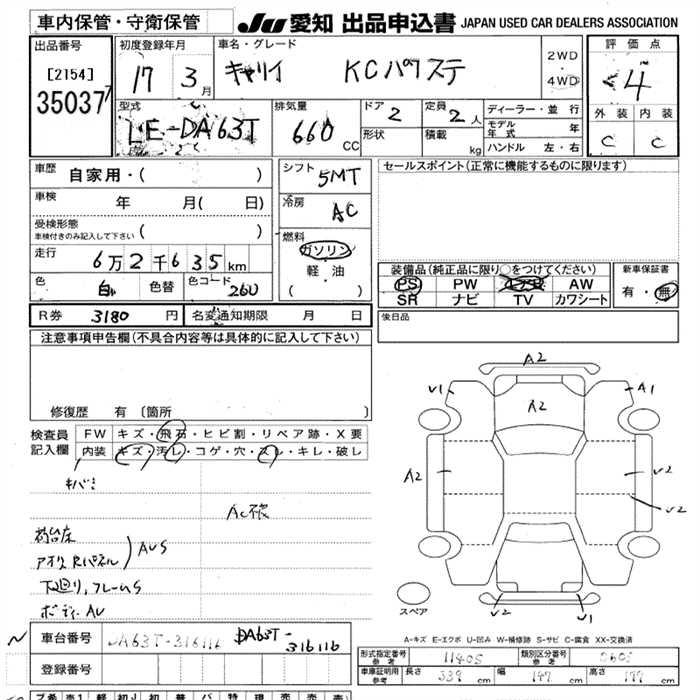 車内保管・守衛保管
JU 愛知 出品申込書 JAPAN USED CAR DEALERS ASSOCIATION
出品番号
[2154]
35037
初度登録年月
17 3月
車名・グレード
キャリイ KCパワステ
2WD
・
4WD
評価点
4
外装 内装
C C
型式
LE-DA63T
排気量
660 CC
ドア 2
形状
定員 2人
積載 kg
ディーラー・並行
モデル年式 年
ハンドル 左・右
車歴 自家用・( )
車検 年 月( 日)
受検形態
車検付きのみ記入して下さい ( )
走行 6万2千635km
色 白 色替 色コード 26U
R券 3180円 名変通知期限 月 日
シフト 5MT
冷房 AC
燃料
ガソリン
軽・油
( )
セールスポイント(正常に機能するものに限ります)
装備品(純正品に限り○をつけてください)
PS PW AW
SR ナビ TV カワシート
新車保証書
有・無
後日品
注意事項申告欄(不具合内容等は具体的に記入して下さい)
修復歴 有 〔箇所 〕
検査員
記入欄
FW キズ・飛石・ヒビ割・リペア跡・X要
内装 キズ・汚レ・コゲ・穴・スレ・キレ・破レ
荷台床
アオリ,Rパネル AUS
下廻り,フレームS
ボディAU
A2
V1 A1
A2
A2 V2
V2
V2 V1
スペア
A-キズ E-エクボ U-凹み W-補修跡 S-サビ C-腐食 XX-交換済
車台番号 DA63T-316116 DA63T-
316116
登録番号
型式指定番号 参考 11405 類別区分番号 参考
車庫証明用 参考 長さ 339cm 幅 147cm 高さ cm